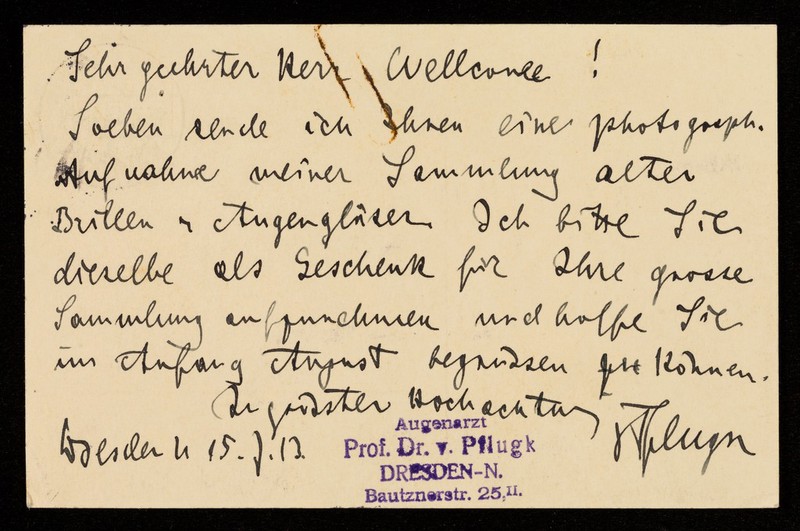 Sehr geehrter Herr Wellcome !
Soeben sende ich Ihnen eine photograph.
Aufnahme meiner Sammlung alter
Brillen u Augengläser. Ich bitte Sie
dieselbe als Geschenk für Ihre grosse
Sammlung aufzunehmen und hoffe Sie
im Anfang August begrüssen zu können.
In grösster Hochachtung
vPflugk
Dresden 15. 7. 13.
Augenarzt
Prof. Dr. v. Pflugk
DRESDEN-N.
Bautznerstr. 25,II.